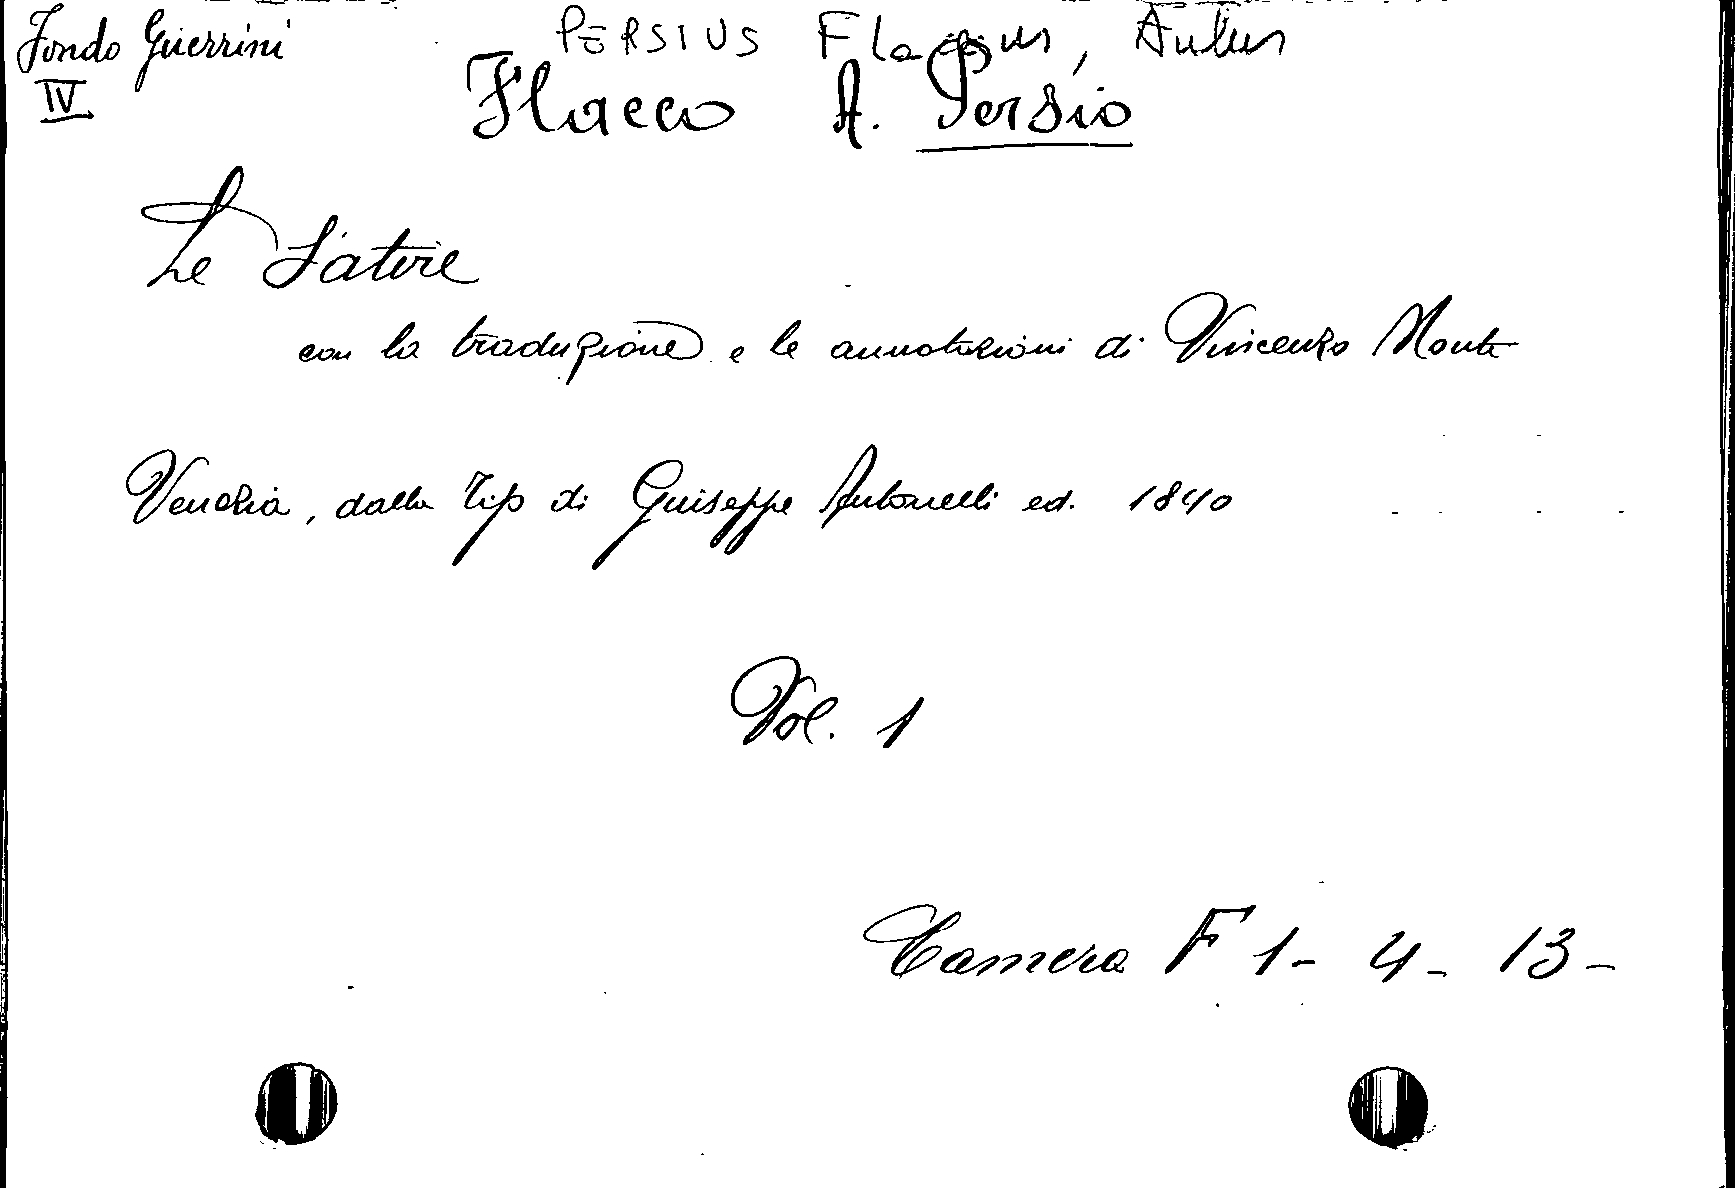 Fondo Guerrini
IV
PERSIUS Flaccus, Aulus
Flacco A. Persio
Le Satire
con la traduzione e le annotazioni di Vincenzo Monti
Venezia, dalla Tip di Giuseppe Antonelli ed. 1840
Vol. 1
Camera F 1 - 4 - 13 -